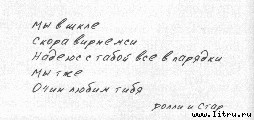 Мы в шкле
Скора вирнемси
Надеюс с табой все в парядки
Мы тже
Очин любим тибя
Долли и Стар
www.litru.ru